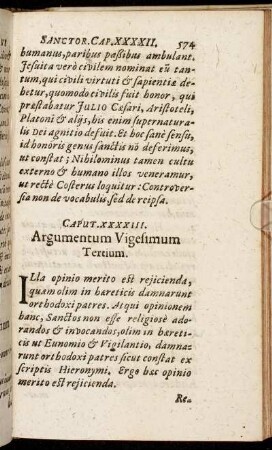 SANCTOR. CAP. XXXXII. 574
humanus, paribus passibus ambulant.
Jesuita verò civilem nominat eū tan-
tum, qui civili virtuti & sapientiæ de-
betur, quomodo civilis fuit honor, qui
præstabatur JULIO Cæsari, Aristoteli,
Platoni & alijs, his enim supernatura-
lis DEI agnitio defuit. Et hoc sanè sensu,
id honoris genus sanctis nō deferimus,
ut constat; Nihilominus tamen cultu
externo & humano illos veneramur,
ut rectè Costerus loquitur: Controver-
sia non de vocabulis, sed de re ipsa.
CAPUT. XXXXIII.
Argumentum Vigesimum
Tertium.
ILla opinio merito est rejicienda,
quam olim in hæreticis damnarunt
orthodoxi patres. Atqui opinionem
hanc, Sanctos non esse religiosè ado-
randos & invocandos, olim in hæreti-
cis ut Eunomio & Vigilantio, damna-
runt orthodoxi patres sicut constat ex
scriptis Hieronymi. Ergo hæc opinio
merito est rejicienda.
Re-